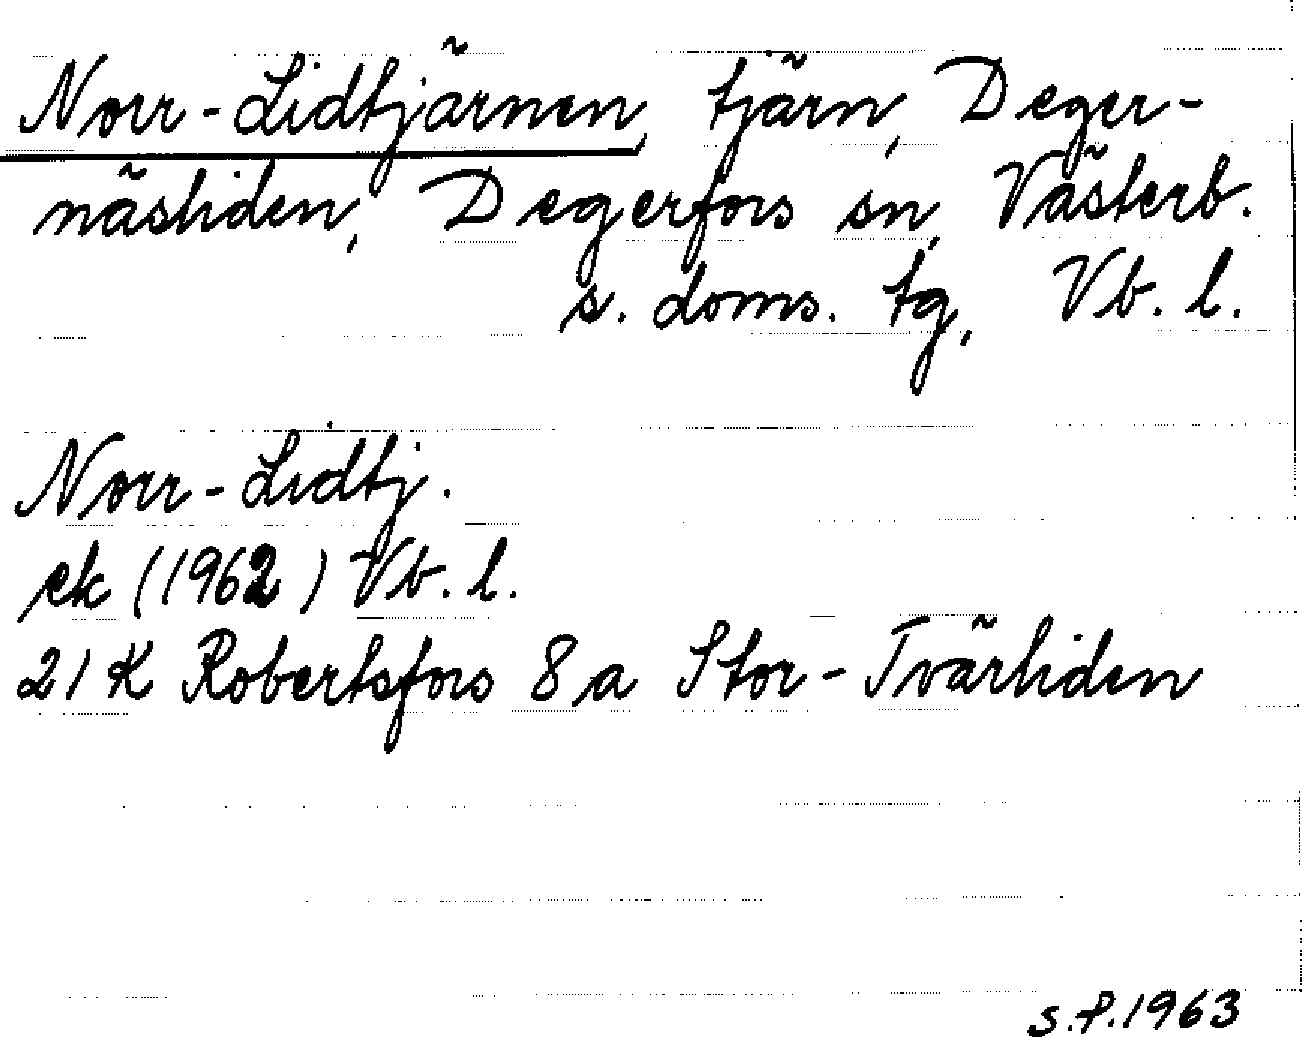 Norr-Lidtjärnen, tjärn, Deger-
näsliden, Degerfors sn, Västerb.
s. doms. tg, Vb. l.
Norr-Lidtj.
ek (1962) Vb. l.
21 K Robertsfors 8 a Stor-Tvärliden
S.P. 1963